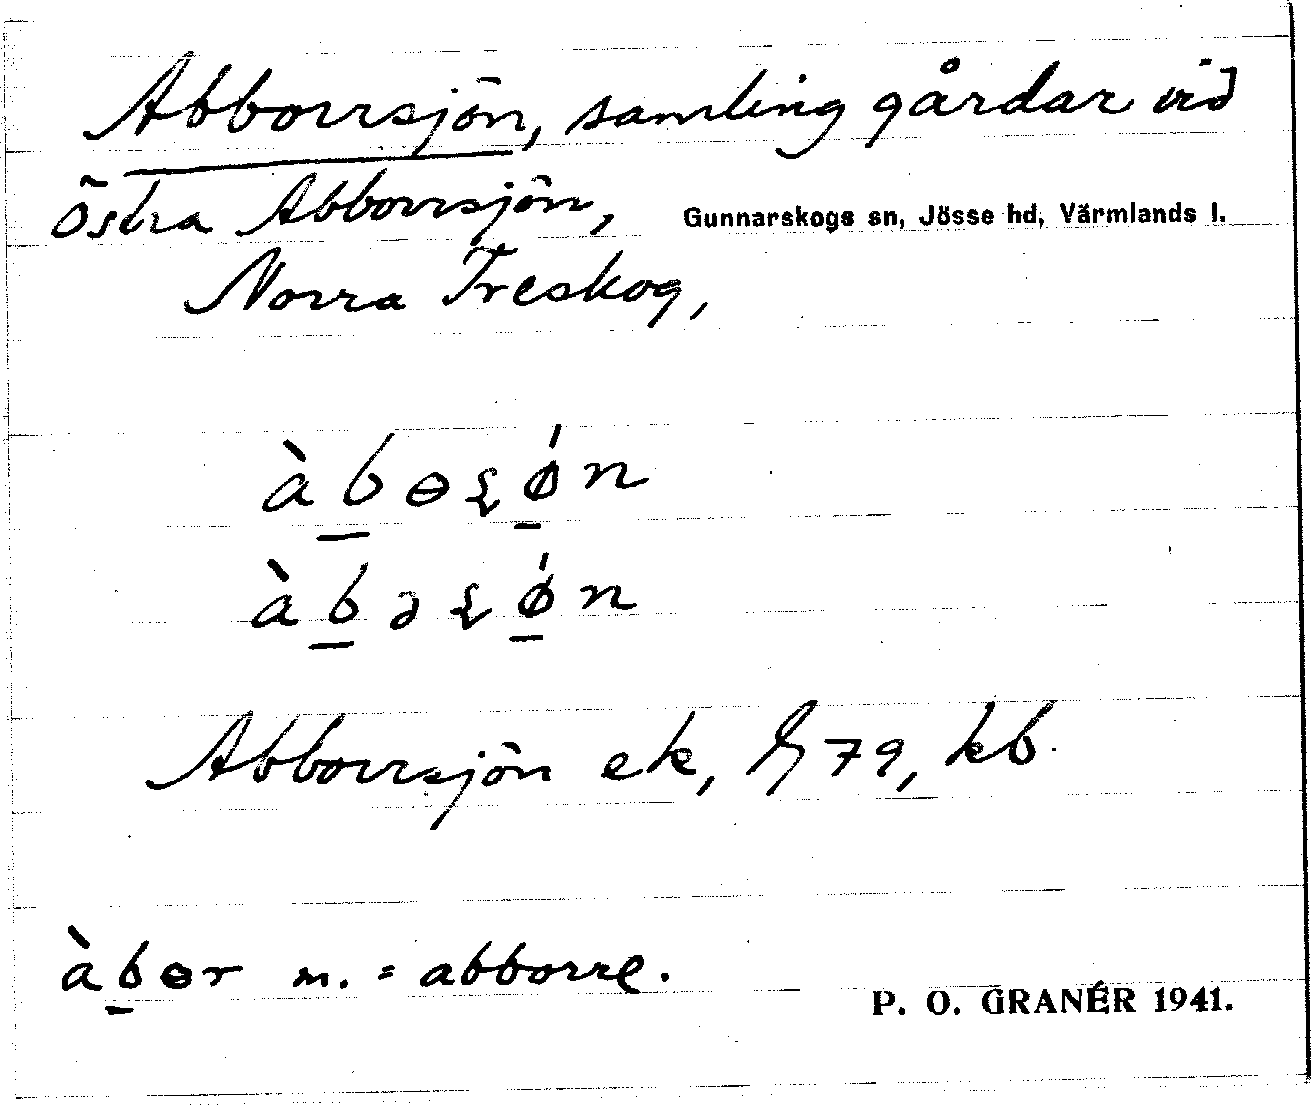 Abborrsjön, samling gårdar vid
Östra Abborrsjön, Gunnarskogs sn, Jösse hd, Värmlands l.
Norra Treskog,
àb̲ɵʂǿ̲n
àb̲əʂǿ̲n
Abborrsjön ek, 79, kb.
àb̲ɵr m. = abborre.
P. O. GRANÉR 1941.